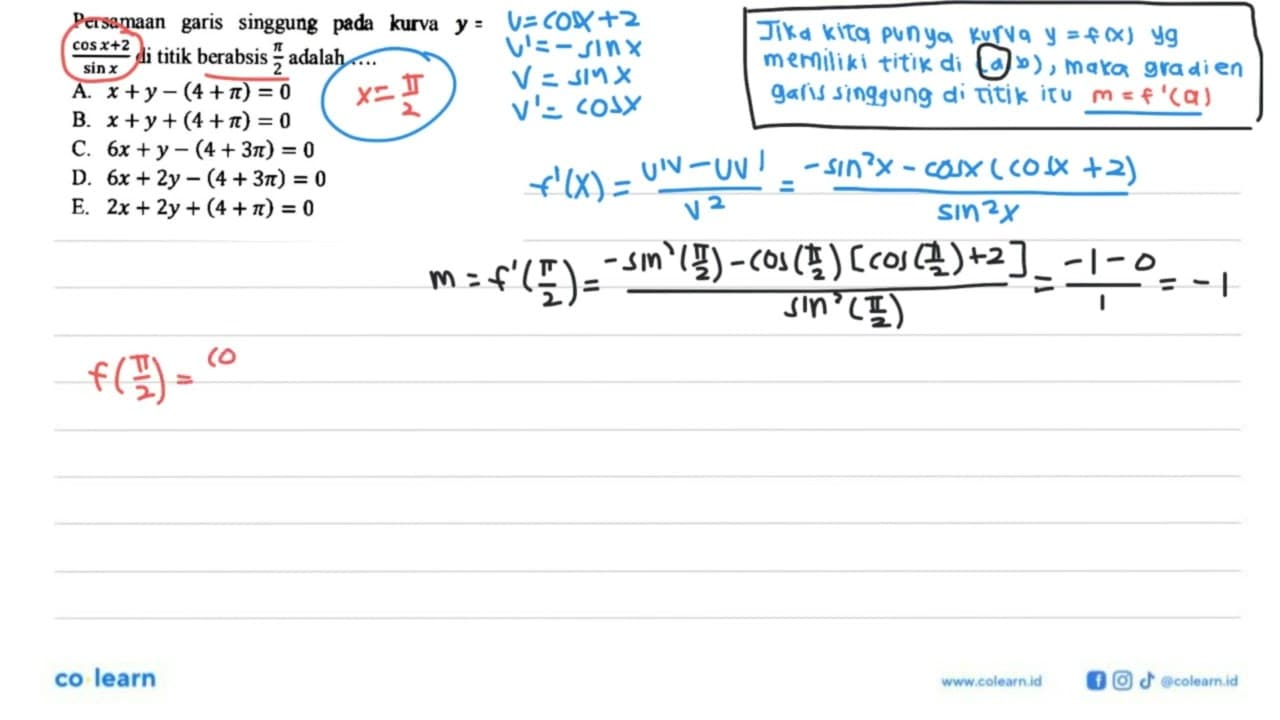 Persamaan garis singgung pada kurva y =
cos x+2 / sin x di titik berabsis π/2 adalah ....
A. x + y − (4 + π) = 0
B. x + y + (4 + π) = 0
C. 6x + y − (4 + 3π) = 0
D. 6x + 2y − (4 + 3π) = 0
E. 2x + 2y + (4 + π) = 0
x = π/2
U = cosx + 2
U' = - sin x
V = sin x
V' = cosx
Jika kita punya kurva y = f(x) yg
memiliki titik di (a,b), maka gradien
garis singgung di titik itu m = f'(a)
f'(x) = U'V - UV' / V² = -sin²x - cosx (cosx + 2) / sin²x
m = f'(π/2) = -sin²(π/2) - cos(π/2) [cos(π/2) + 2] / sin²(π/2) = -1 - 0 / 1 = -1
f(π/2) = co
co learn
www.colearn.id
@colearn.id